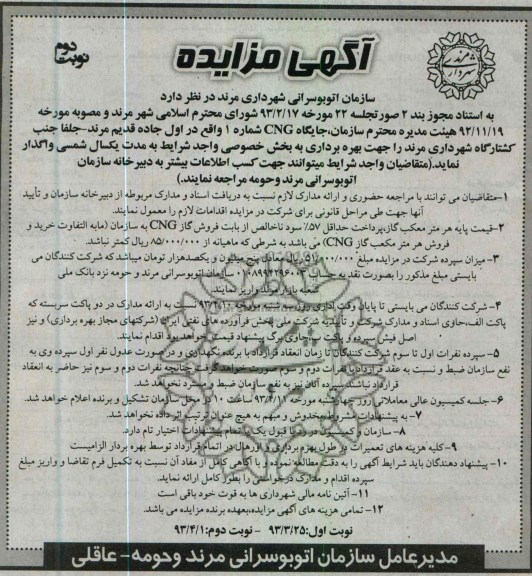 نوبت دوم
آگهی مزایده
شهرداری مرند
سازمان اتوبوسرانی شهرداری مرند در نظر دارد
به استناد مجوز بند ۲ صورتجلسه ۲۲ مورخه ۹۳/۲/۱۷ شورای محترم اسلامی شهر مرند و مصوبه مورخه
۹۲/۱۱/۱۹ هیئت مدیره محترم سازمان،جایگاه CNG شماره ۱ واقع در اول جاده قدیم مرند-جلفا جنب
کشتارگاه شهرداری مرند را جهت بهره برداری به بخش خصوصی واجد شرایط به مدت یکسال شمسی واگذار
نماید.(متقاضیان واجد شرایط میتوانند جهت کسب اطلاعات بیشتر به دبیرخانه سازمان
اتوبوسرانی مرند وحومه مراجعه نمایند.)
۱-متقاضیان می توانند با مراجعه حضوری و ارائه مدارک لازم نسبت به دریافت اسناد و مدارک مربوطه از دبیرخانه سازمان و تأیید
آنها جهت طی مراحل قانونی برای شرکت در مزایده اقدامات لازم را معمول نمایند.
۲-قیمت پایه هر متر مکعب گاز،پرداخت حداقل ۵۷٪ سود ناخالص از بابت فروش گاز CNG به سازمان (مابه التفاوت خرید و
فروش هر متر مکعب گاز CNG) می باشد به شرطی که ماهیانه از ۸۵/۰۰۰/۰۰۰ ریال کمتر نباشد.
۳- میزان سپرده شرکت در مزایده مبلغ ۵۱/۰۰۰/۰۰۰ ریال معادل پنج میلیون و یکصدهزار تومان میباشد که شرکت کنندگان می
بایستی مبلغ مذکور را بصورت نقد به حساب ۰۱۰۸۹۹۴۲۹۶۰۰۳ سازمان اتوبوسرانی مرند و حومه نزد بانک ملی
شعبه بازار مرند واریز نمایند.
۴- شرکت کنندگان می بایستی تا پایان وقت اداری روز شنبه مورخه ۹۳/۴/۱۰ نسبت به ارائه مدارک در دو پاکت سربسته که
پاکت الف،حاوی اسناد و مدارک شرکت و تأییدیه شرکت ملی پخش فرآورده های نفتی ایران (شرکتهای مجاز بهره برداری) و نیز
اصل فیش سپرده و پاکت ب،حاوی برگ پیشنهاد قیمت خواهد بود اقدام نمایند.
۵- سپرده نفرات اول تا سوم شرکت کنندگان تا زمان انعقاد قرارداد با برنده نگهداری و در صورت عدول نفر اول سپرده وی به
نفع سازمان ضبط و نسبت به عقد قرارداد با نفرات دوم و سوم صورت خواهد گرفت چنانچه نفرات دوم و سوم نیز حاضر به انعقاد
قرارداد نباشند سپرده آنان نیز به نفع سازمان ضبط و مسترد نخواهد شد.
۶- جلسه کمیسیون عالی معاملاتی روز چهارشنبه مورخه ۹۳/۴/۱۱ ساعت ۱۰ در محل سازمان تشکیل و برنده اعلام خواهد شد.
۷- به پیشنهادات مشروط،مخدوش و مبهم به هیچ عنوان ترتیب اثر داده نخواهد شد.
۸- سازمان و کمیسیون در رد یا قبول یک یا تمام پیشنهادات اختیار تام دارد.
۹-کلیه هزینه های تعمیرات در طول بهره برداری و اورهال در اتمام قرارداد توسط بهره بردار الزامیست
۱۰- پیشنهاد دهندگان باید شرایط آگهی را به دقت مطالعه نموده و با آگاهی کامل از مفاد آن نسبت به تکمیل فرم تقاضا و واریز مبلغ
سپرده اقدام و مدارک درخواستی را بطور کامل ارائه نماید.
۱۱- آئین نامه مالی شهرداری ها به قوت خود باقی است
۱۲- تمامی هزینه های آگهی مزایده،بعهده برنده مزایده می باشد.
نوبت اول:۹۳/۳/۲۵ - نوبت دوم:۹۳/۴/۱
مدیرعامل سازمان اتوبوسرانی مرند وحومه- عاقلی